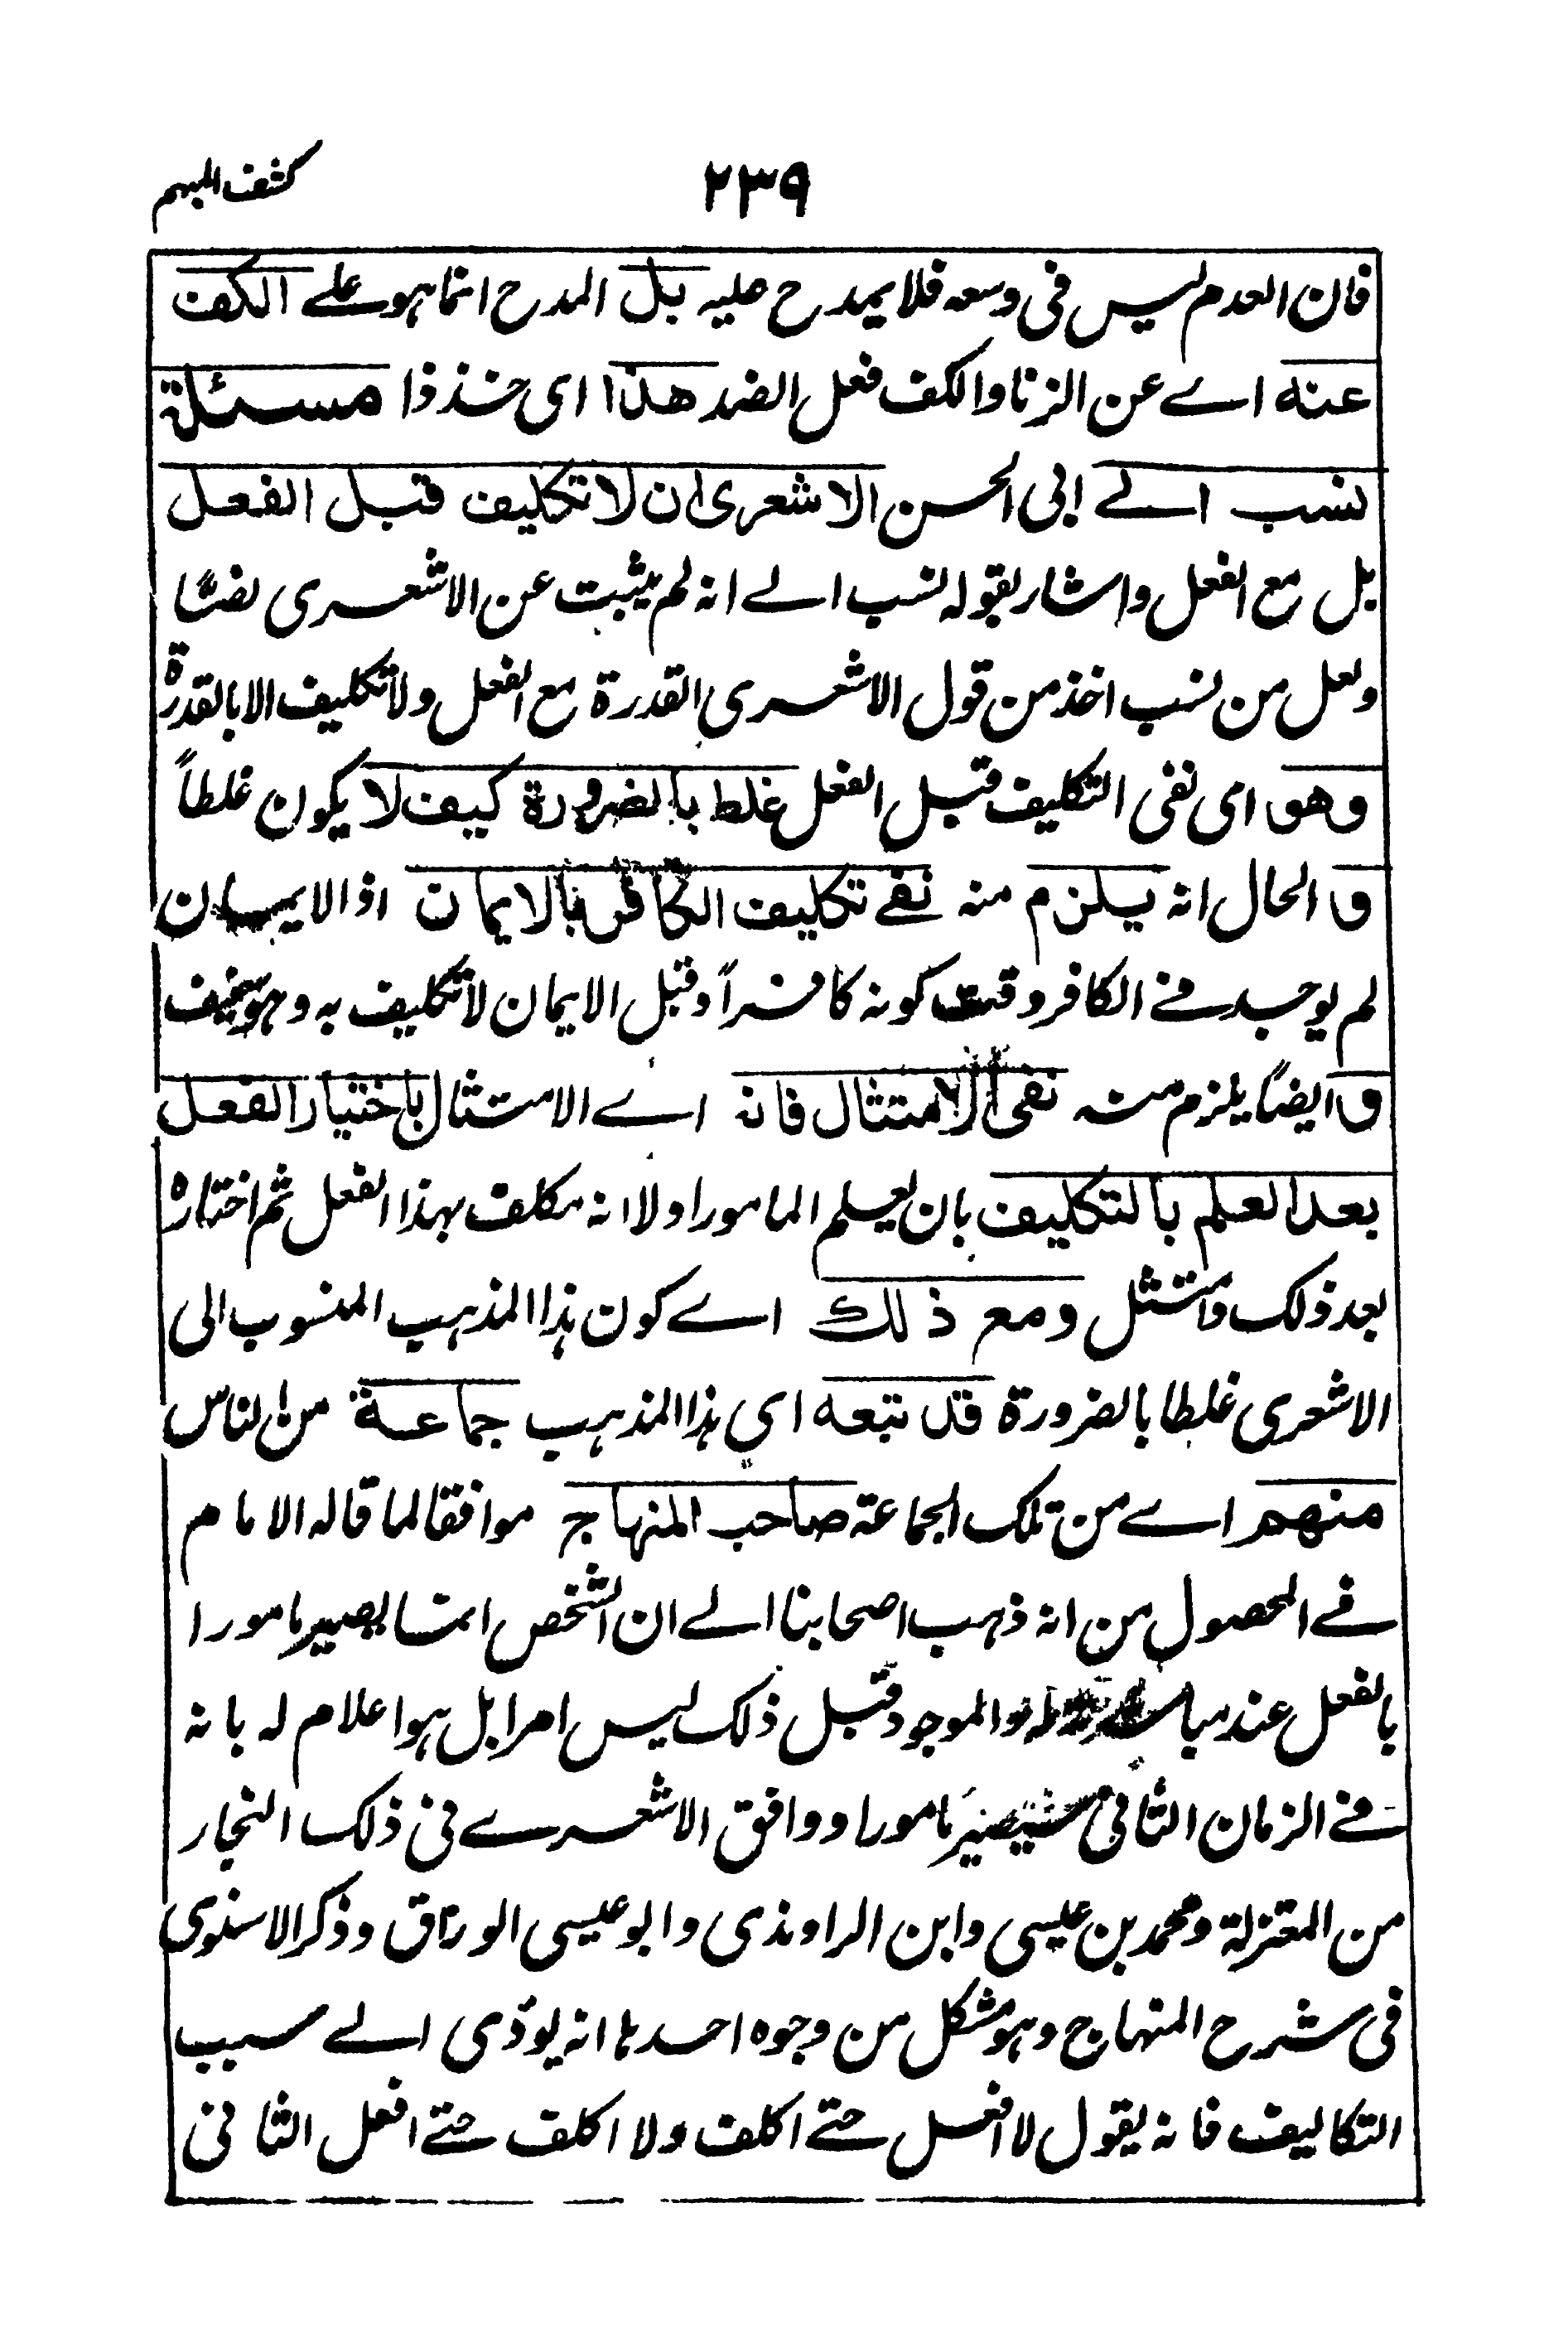 كشف المبهم
٢٣٩
فان العدم ليس فى وسعه فلا يمدح عليه بل المدح انما هو على الكف
عنه اے عن الزنا والكف فعل الضد هذا اى خذ ذا مسئلة
نسب الے ابى الحسن الاشعرى ان لا تكليف قبل الفعل
بل مع الفعل واشار بقوله نسب الے انه لم يثبت عن الاشعرى نصًا
ولعل من نسب اخذ من قول الاشعرى القدرة مع الفعل ولا تكليف الا بالقدرة
وهو اى نفى التكليف قبل الفعل غلط بالضرورة كيف لا يكون غلطاً
و الحال انه يلزم منه نفے تكليف الكافر بالايمان اذ الايمان
لم يوجد فے الكافر وقت كونه كافراً وقبل الايمان لا تكليف به وهو سخيف
و ايضًا يلزم منه نفى الامتثال فانه اے الامتثال باختيار الفعل
بعد العلم بالتكليف بان يعلم المامور اولا انه مكلف بهذا الفعل ثم اختاره
بعد ذلك وامتثل ومع ذلك اے كون هذا المذهب المنسوب الى
الاشعرى غلطا بالضرورة قد تبعه اى هذا المذهب جماعة من الناس
منهم اے من تلك الجماعة صاحب المنهاج موافقا لما قاله الامام
فے المحصول من انه ذهب اصحابنا الے ان الشخص انما يصير مامورا
بالفعل عند مباشرته له والموجود قبل ذلك ليس امرا بل هو اعلام له بانه
فے الزمان الثانى سيصير مامورا ووافق الاشعرے فى ذلك النجار
من المعتزلة ومحمد بن عيسى وابن الراوندى وابو عيسى الوراق وذكر الاسنوى
فى شرح المنهاج وهو مشكل من وجوه احدها انه يودّى الے سبب
التكاليف فانه يقول لا افعل حتے اكلف ولا اكلف حتے افعل الثانى